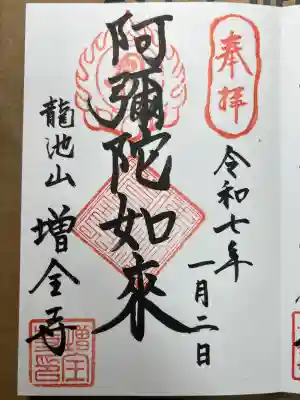 奉拝
令和七年
一月二日
阿彌陀如來
龍池山
増全寺